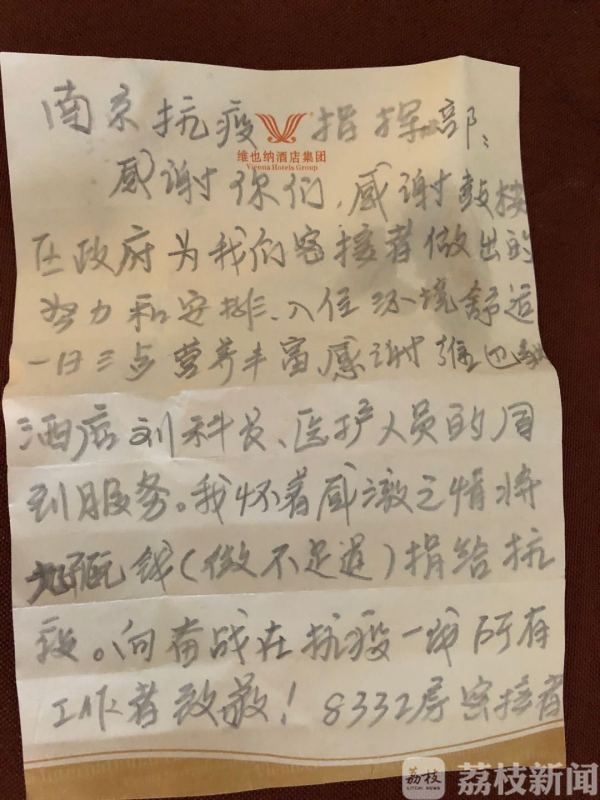 南京抗疫指挥部:
维也纳酒店集团
Vienna Hotels Group
感谢你们,感谢鼓楼
区政府为我们密接者做出的
努力和安排、入住环境舒适
一日三点营养丰富、感谢维也纳
酒店刘科长、医护人员的周
到服务。我怀着感激之情将
钱(微不足道)捐给抗
疫。向奋战在抗疫一线所有
工作者致敬! 8332房密接者
荔枝
LITCHI NEWS
荔枝新闻